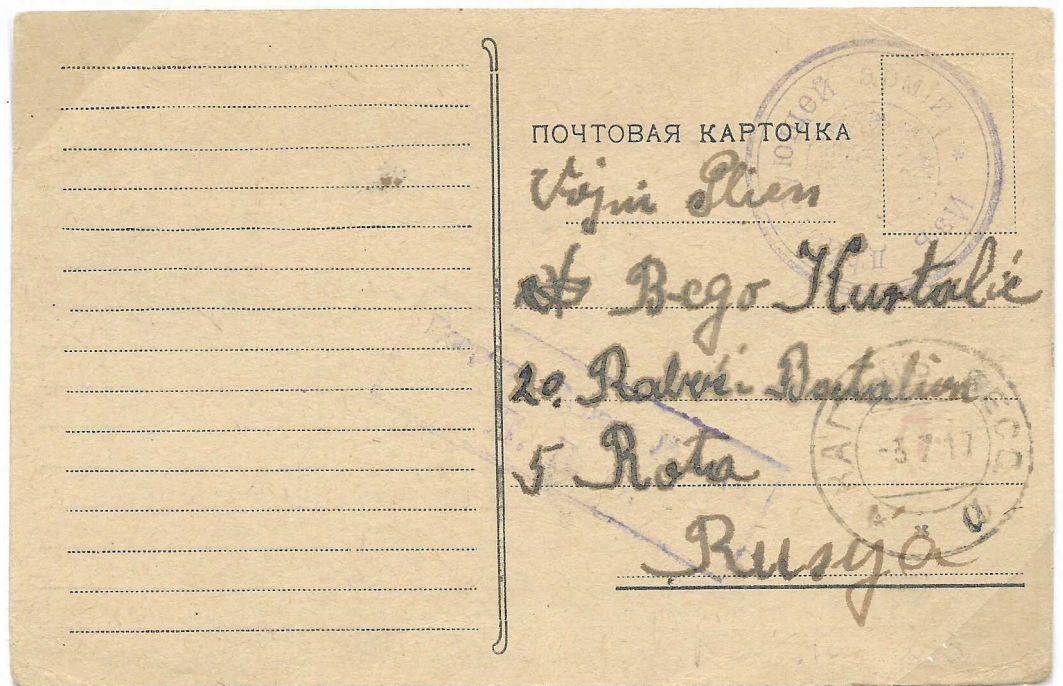 ПОЧТОВАЯ КАРТОЧКА
Vojni Plien
Bego Kurtalić
20. Raboči Batalion
5 Rota
Rusyä
армій * Изъ
-3 7 17